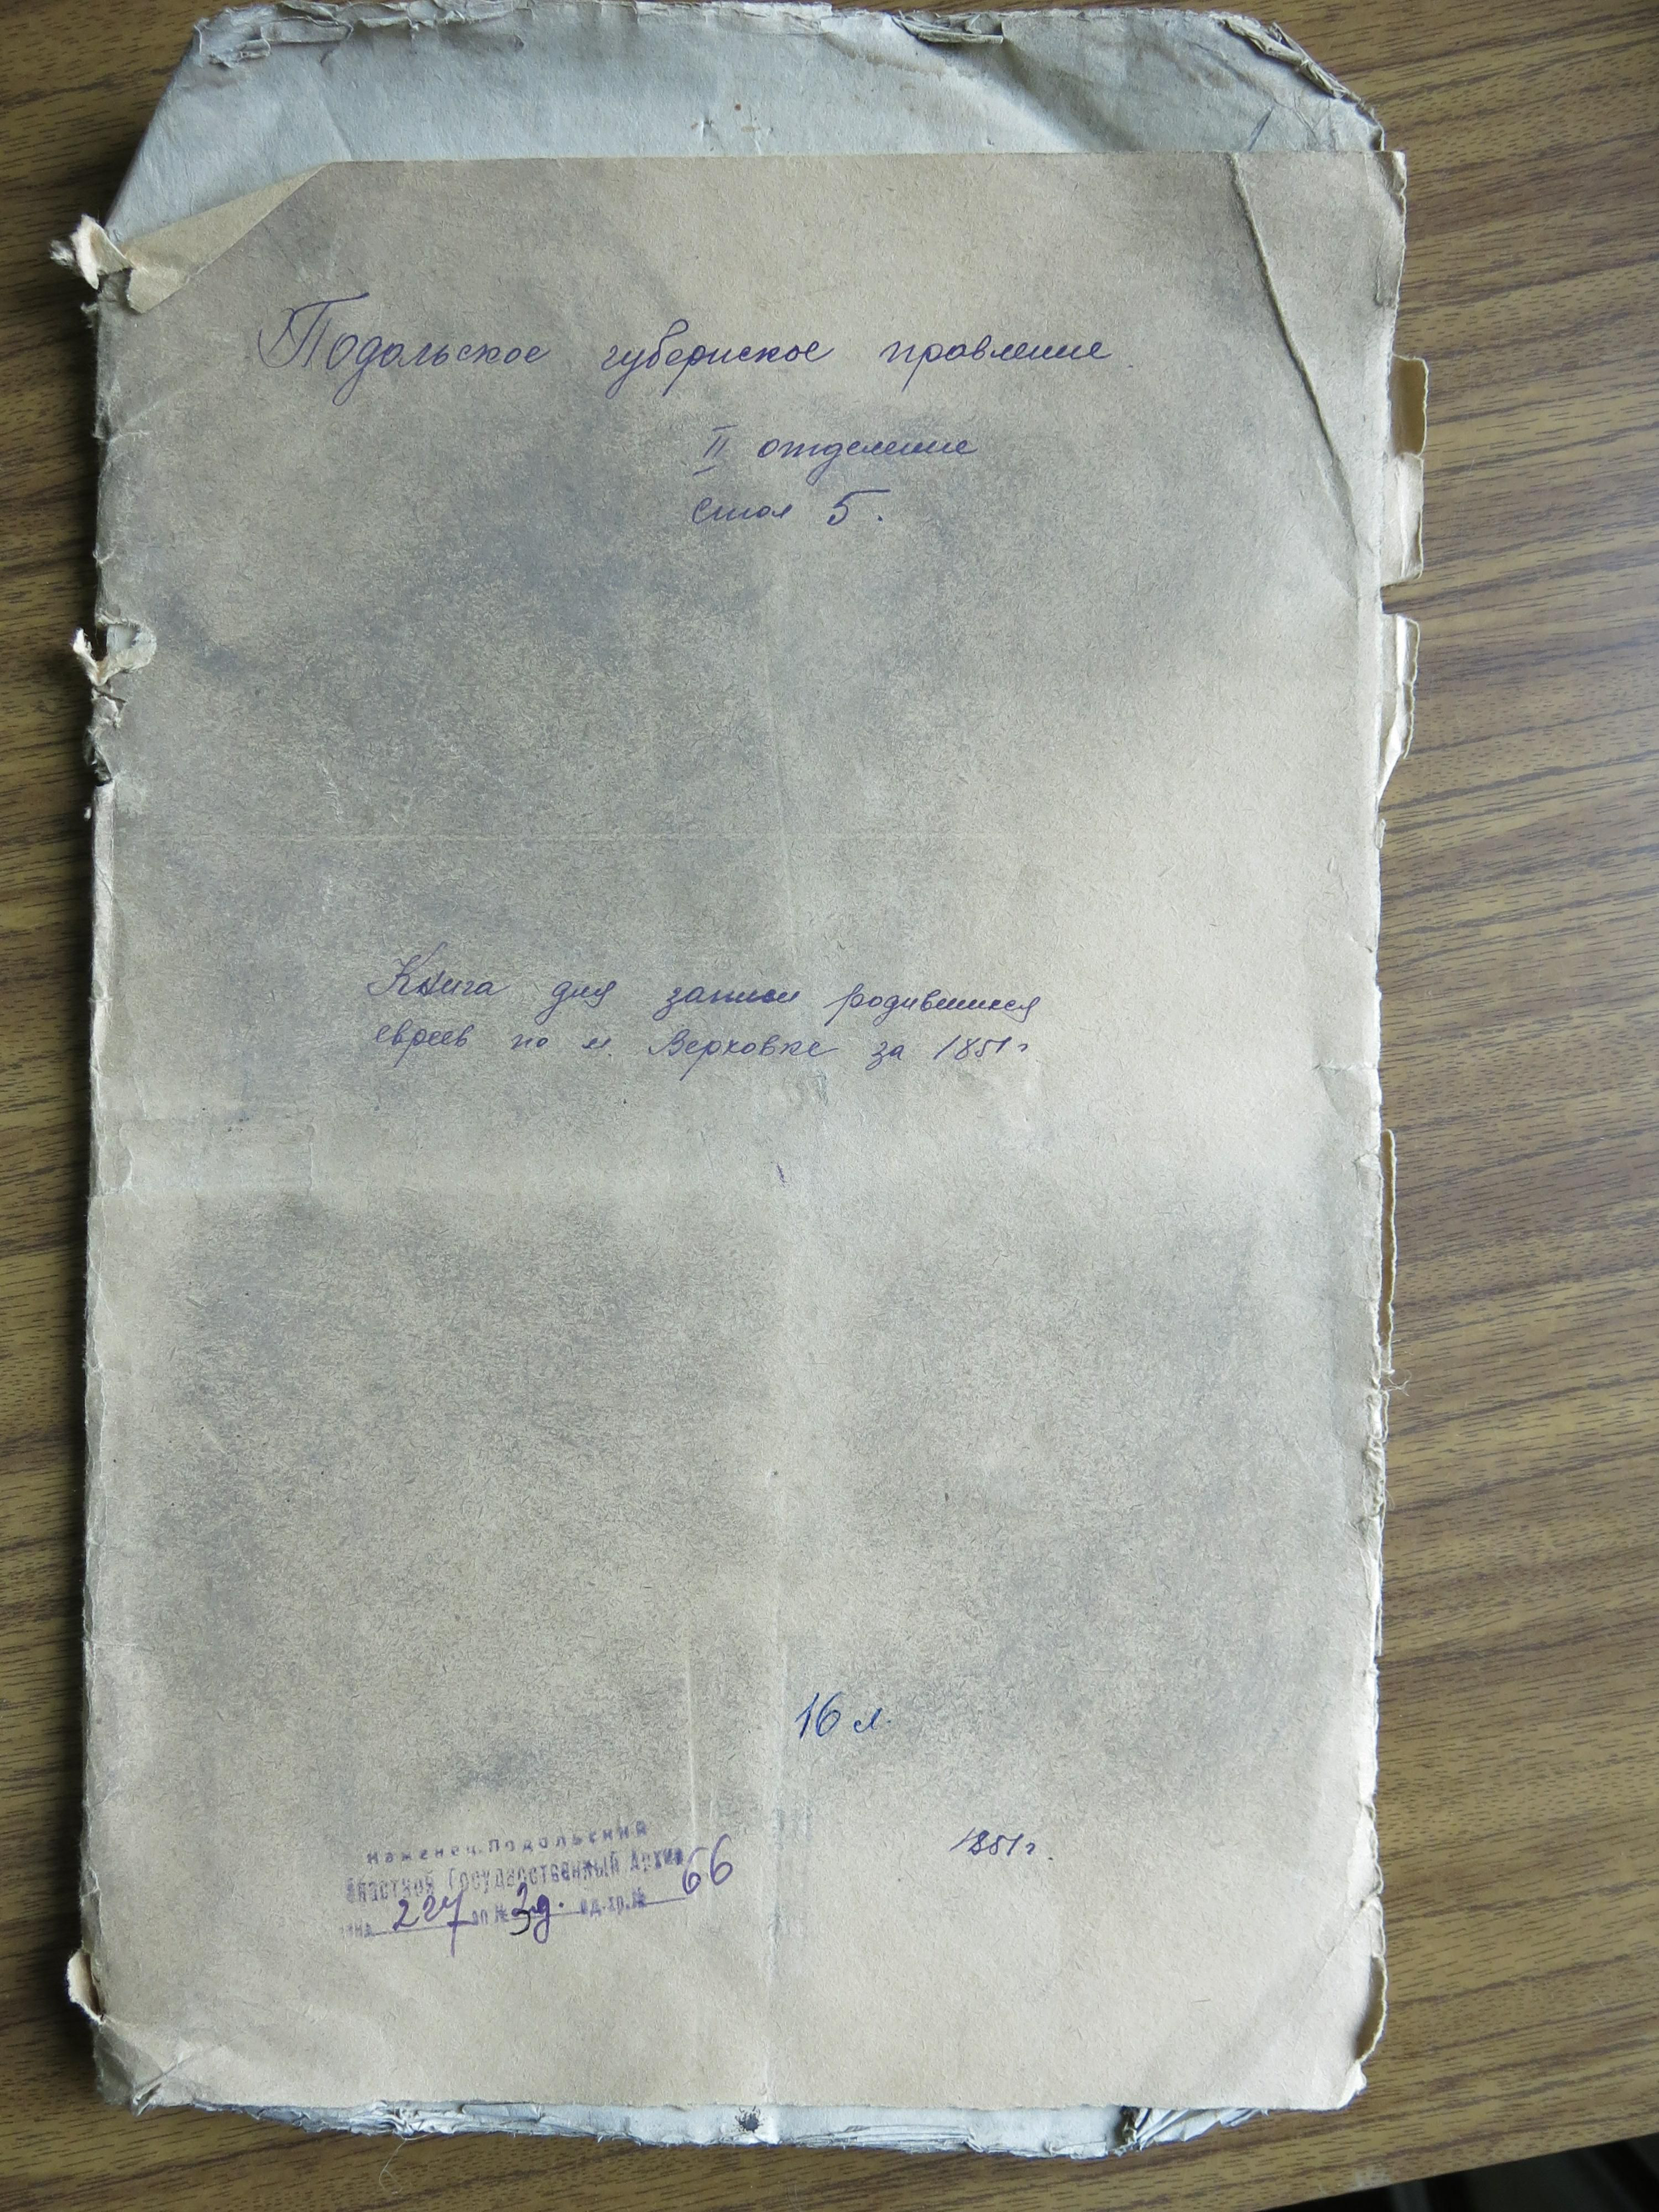 Подольское губернское правление
II отделение
стол 5.
Книга для записи родившихся
евреев по м. Верховке за 1851 г
16 л.
1851 г.
Каменец-Подольский
бластной Государственный Архив
227 оп № 3д. ед. хр. № 66